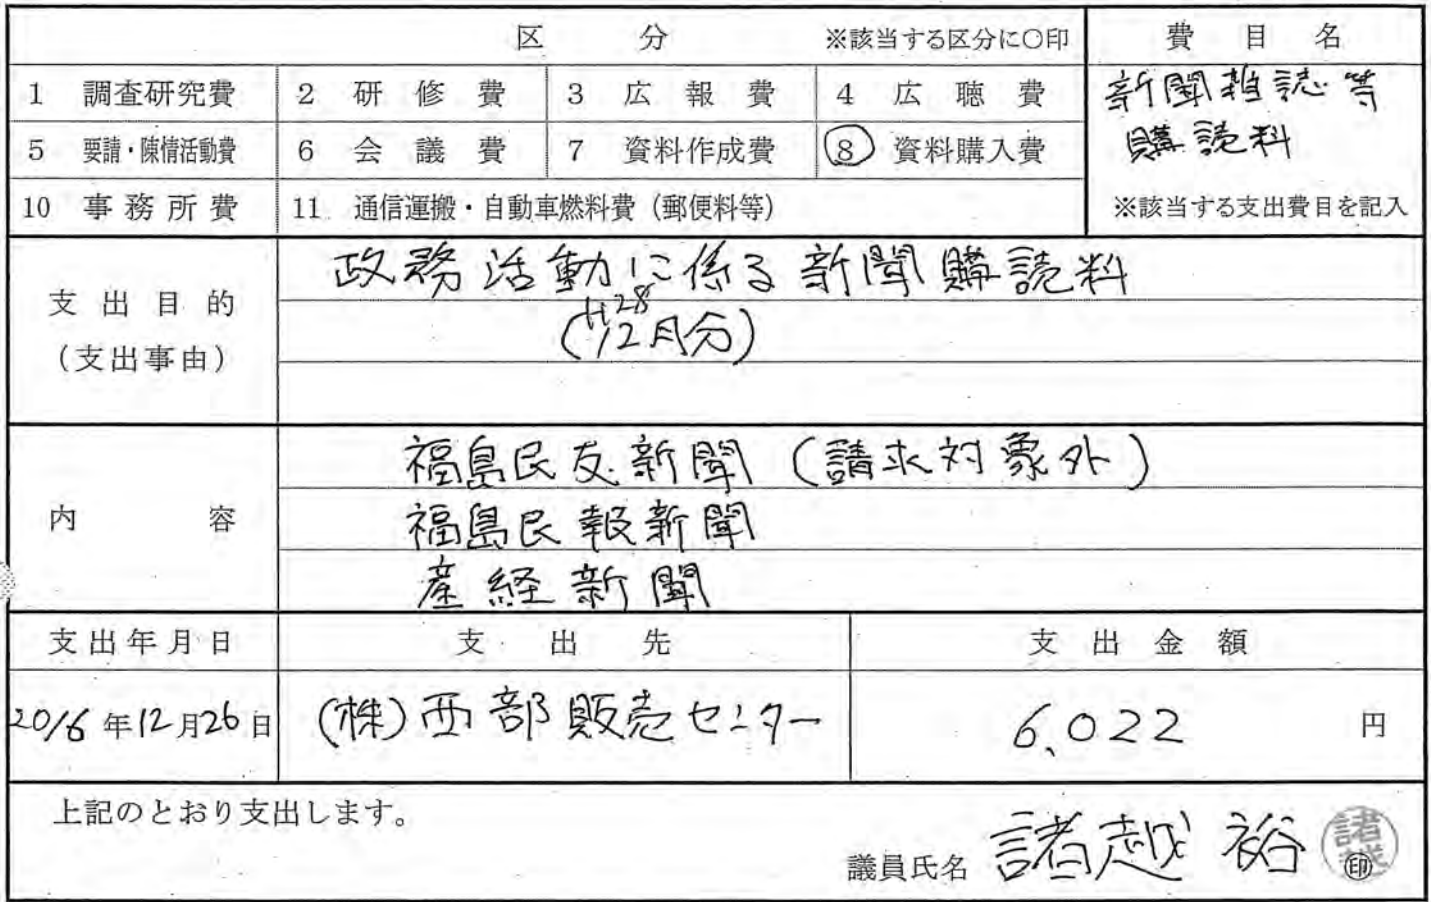 区 分 ※該当する区分に○印 費目名
1 調査研究費 2 研修費 3 広報費 4 広聴費 新聞雑誌等
5 要請・陳情活動費 6 会議費 7 資料作成費 8 資料購入費 購読料
10 事務所費 11 通信運搬・自動車燃料費（郵便料等） ※該当する支出費目を記入
支出目的 政務活動に係る新聞購読料
（支出事由） (H28 12月分)
福島民友新聞 (請求対象外)
内容 福島民報新聞
産経新聞
支出年月日 支出先 支出金額
2016年12月26日 (株)西部販売センター 6,022 円
上記のとおり支出します。
議員氏名 諸越 裕 諸越 印